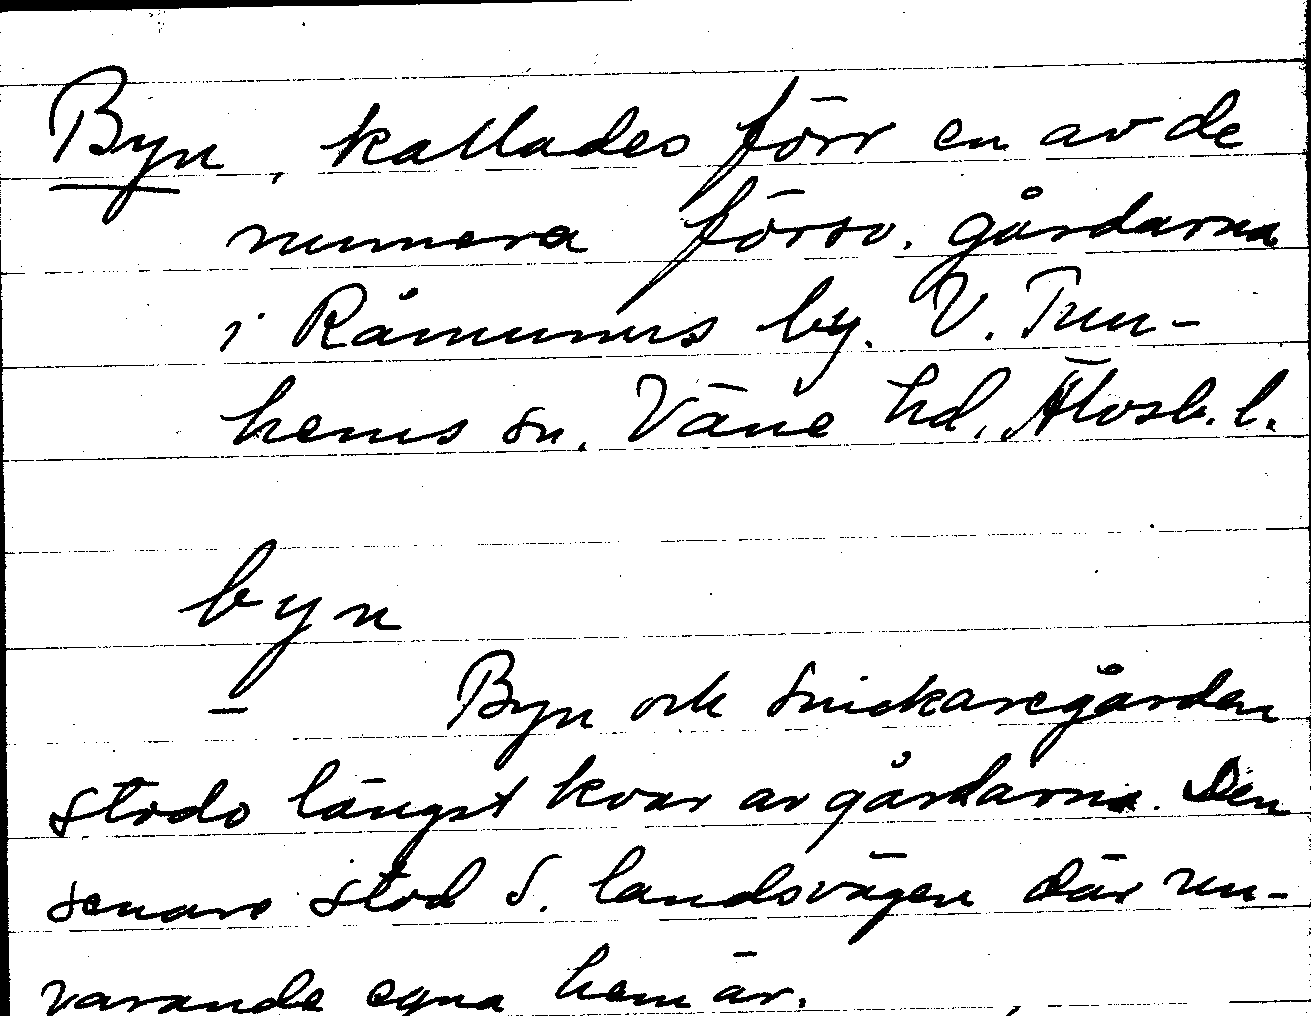 Byn, kallades förr en av de
numera försv. gårdarna
i Råmunus by. V. Tun-
hems sn. Väne hd. Älvsb. l.
byn
Byn och Snickaregården
stodo längst kvar av gårdarna. Den
senare stod S. landsvägen där nu-
varande egna hem är.